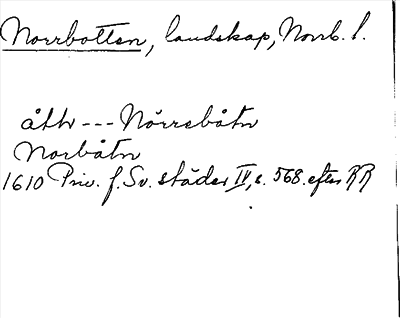 Norrbotten, landskap, Norrb. l.
åthr --- Nörrebåtn
Norbåtn
1610 Priv. f. Sv. städer IV, s. 568. efter RR